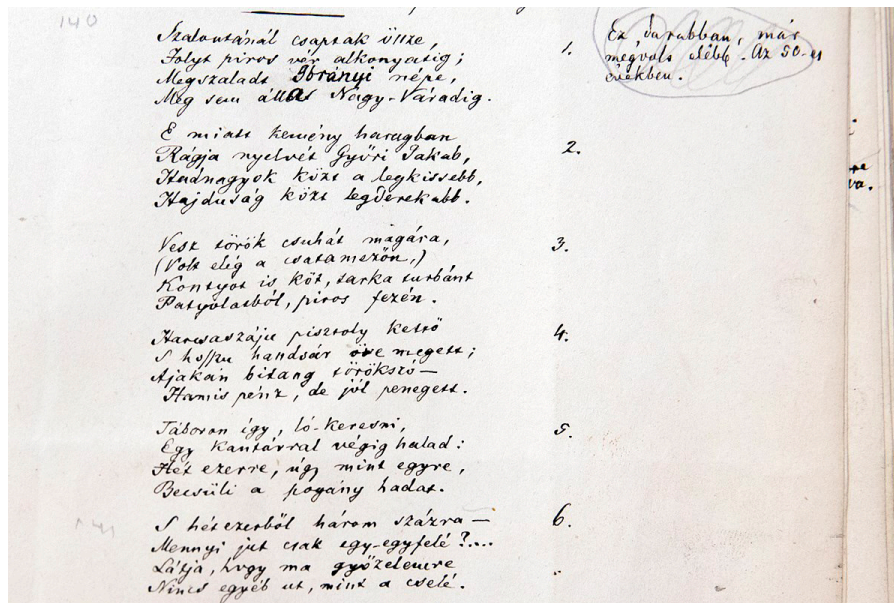 140
Szalontánál csaptak össze,
Folyt piros vér alkonyatig;
Megszaladt Ibrányi népe,
Meg sem állt Nagy-Váradig.
1.
Ez darabban, már
megvolt előbb. Az 50-es
években.
E miatt kemény haragban
Rágja nyelvét Győri Jakab,
Hadnagyok közt a legkissebb,
Hajduság közt legderekabb.
2.
Vesz török csuhát magára,
(Volt elég a csatamezőn,)
Kontyot is köt, tarka turbánt
Patyolatból, piros fezén.
3.
Harcsaszáju pisztoly kettő
S hosszu handsár öve megett;
Ajakán bitang törökszó—
Hamis pénz, de jól penegett.
4.
Táboron így, ló-keresni,
Egy kantárral végig halad:
Hét ezerre, úgy mint egyre,
Becsüli a pogány hadat.
5.
S hétezerből három százra—
Mennyi jut csak egy-egyfelé?...
Látja, hogy ma győzelemre
Nincs egyéb ut, mint a cselé.
6.
141
va.